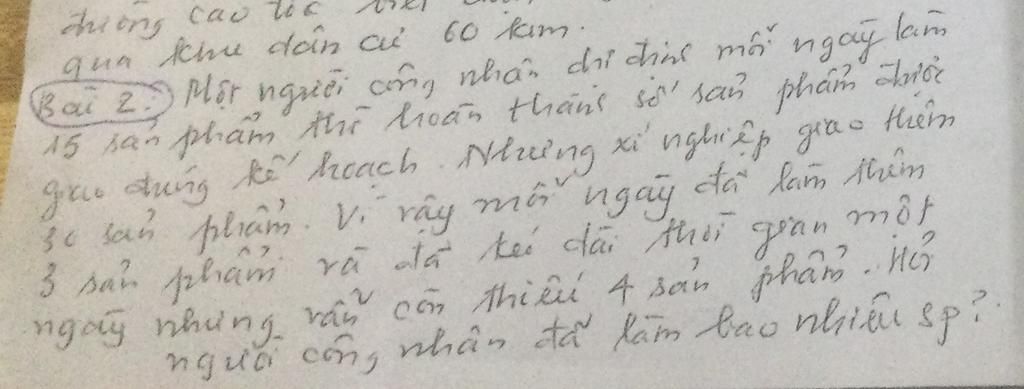 đường cao tốc
qua khu dân cư 60 km.
Bài 2: Một người công nhân dự định mỗi ngày làm
15 sản phẩm thì hoàn thành số sản phẩm được
giao đúng kế hoạch. Nhưng xí nghiệp giao thêm
30 sản phẩm. Vì vậy mỗi ngày đã làm thêm
3 sản phẩm và đã kéo dài thời gian một
ngày nhưng vẫn còn thiếu 4 sản phẩm. Hỏi
người công nhân đã làm bao nhiêu sp?